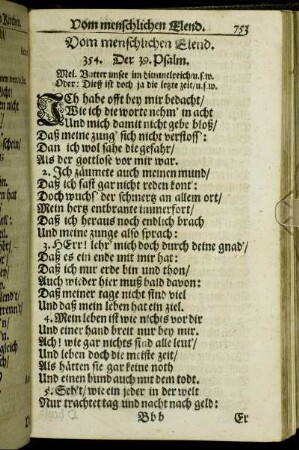 Vom menschlichen Elend. 753
Vom menschlichen Elend.
354. Der 39. Psalm.
Mel. Vatter unser im himmelreich/u.s.w.
Oder: Dieß ist doch ja die letzte zeit/u.s.w.
ICh habe offt bey mir bedacht/
Wie ich die worte nehm' in acht
Und mich damit nicht gebe bloß/
Daß meine zung' sich nicht verstoß':
Dan ich wol sahe die gefahr/
Als der gottlose vor mir war.
2. Ich zäumete auch meinen mund/
Daß ich fast gar nicht reden kont':
Doch wuchs' der schmertz an allem ort/
Mein hertz entbrante immerfort/
Daß ich heraus noch endlich brach
Und meine zunge also sprach:
3. HErr! lehr' mich doch durch deine gnad'/
Daß es ein ende mit mir hat:
Daß ich nur erde bin und thon/
Auch wieder hier muß bald davon:
Daß meiner tage nicht sind viel
Und daß mein leben hat ein ziel.
4. Mein leben ist wie nichts vor dir
Und einer hand breit nur bey mir.
Ach! wie gar nichts sind alle leut'/
Und leben doch die meiste zeit/
Als hätten sie gar keine noth
Und einen bund auch mit dem todt.
5. Seh't/ wie ein jeder in der welt
Nur trachtet tag und nacht nach geld:
Bbb Er